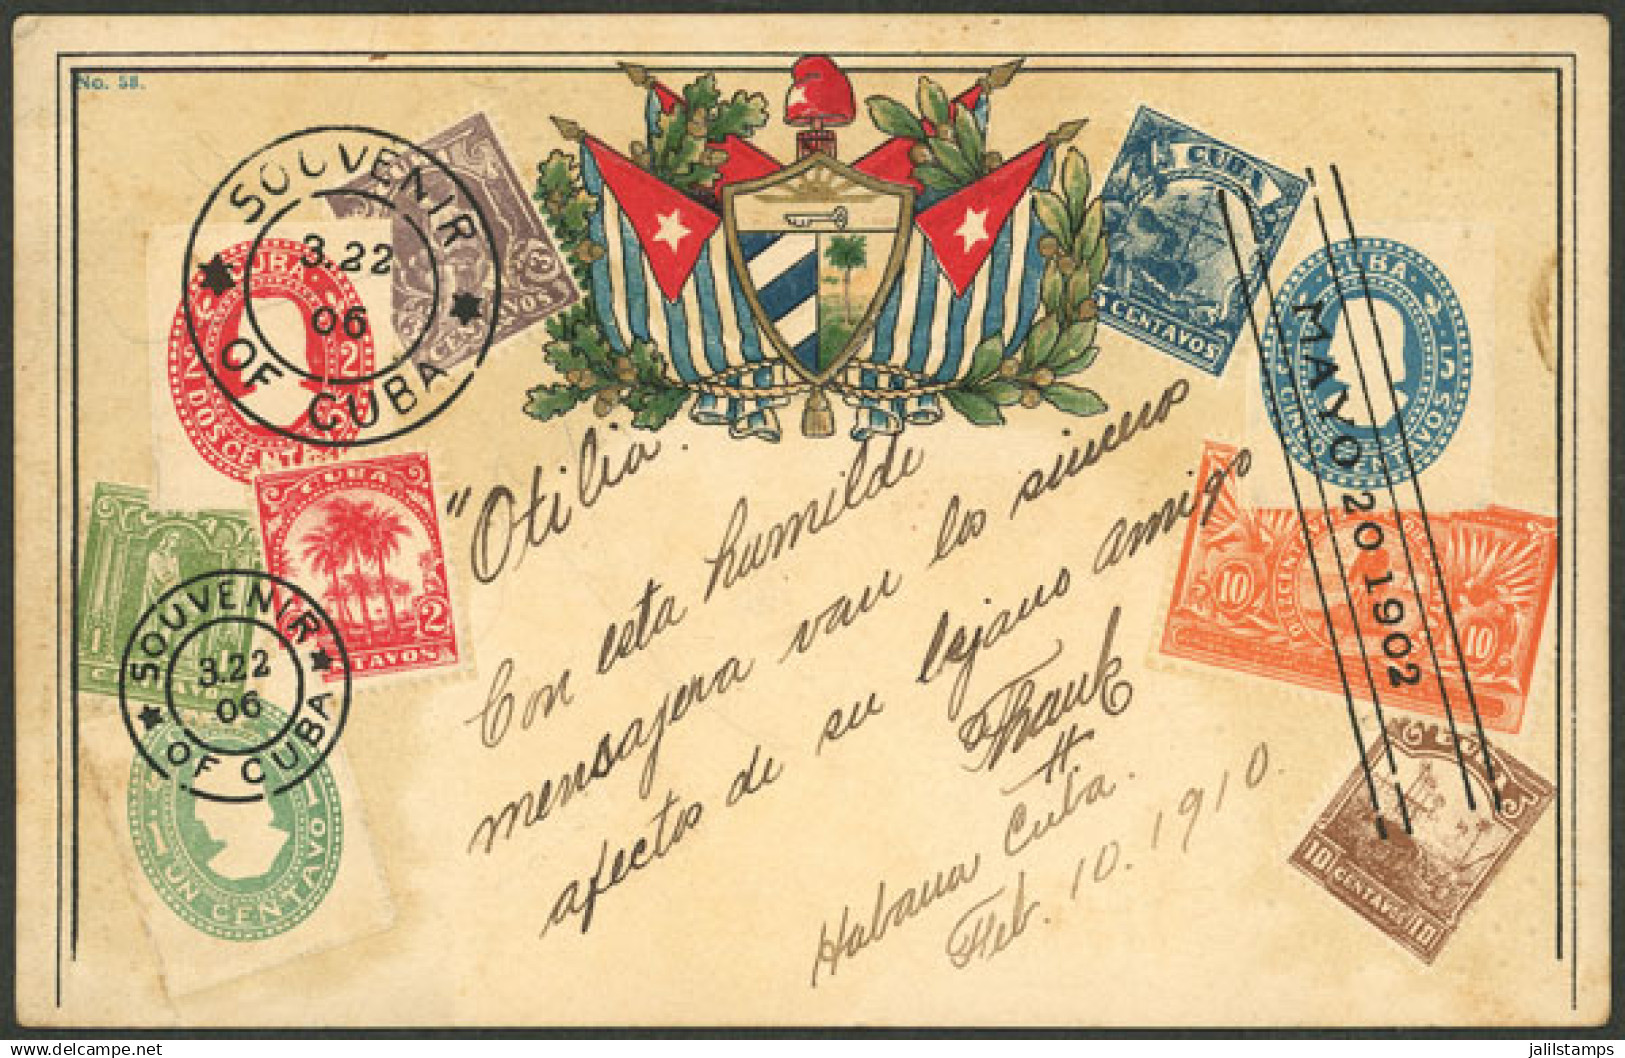 No. 58.
SOUVENIR OF CUBA
3.22
06
CENTAVOS
CUBA
2 2
DOS CENT
CUBA
2
TAVOS
1
CENTAVO
SOUVENIR OF CUBA
3.22
06
1
UN CENTAVO
CUBA
CENTAVOS
CUBA
5
CINCO CENTAVOS
MAYO 20 1902
10
10
10 CENTAVOS 10
"Otilia.
Con esta humilde
mensajera van los sinceros
afectos de su lejano amigo
Frank
H.
Habana Cuba.
Feb. 10. 1910.
jalilstamps